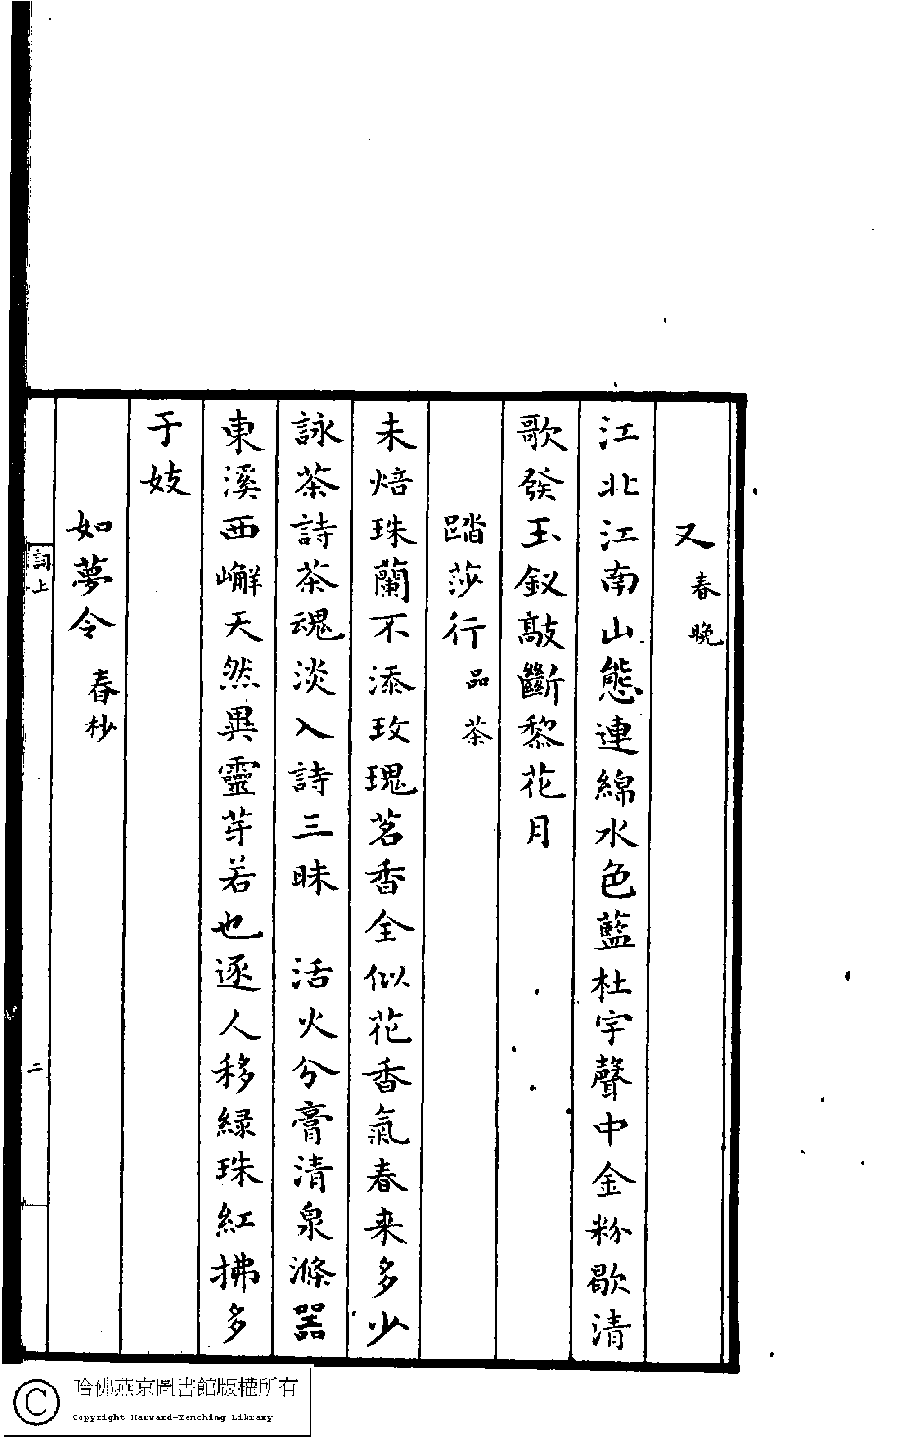 又 春晚
江北江南山態連綿水色藍杜宇聲中金粉歇清
歌發玉釵敲斷黎花月
踏莎行 品茶
未焙珠蘭不添玫瑰茗香全似花香氣春来多少
詠茶詩茶魂淡入詩三昧　活火分膏清泉滌器
東溪西嶰天然異靈芽若也逐人移緑珠紅拂多
于妓
如夢令 春杪
詞上
二
哈佛燕京圖書館版權所有
Copyright Harvard-Yenching Library